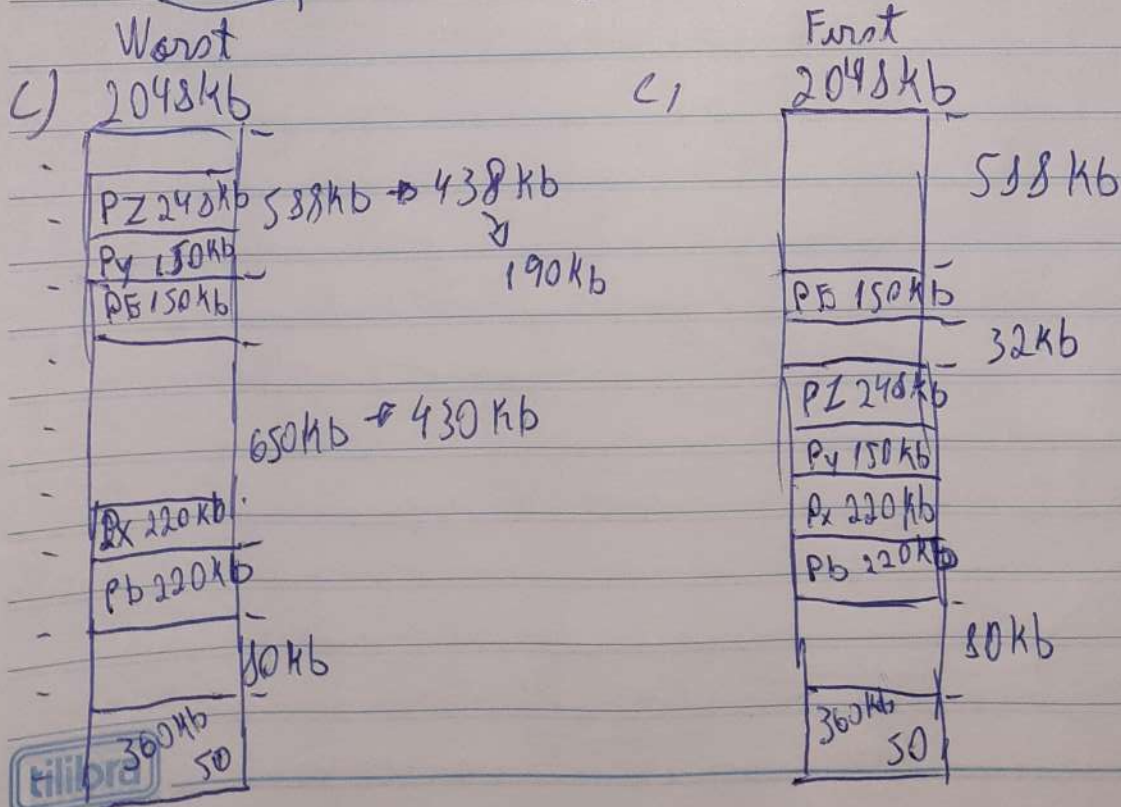 Worst
C) 2048Kb
PZ 248Kb 588Kb → 438Kb
↘
Py 150Kb
190Kb
P5 150Kb
650Kb → 430Kb
Px 220Kb
Pb 220Kb
80Kb
360Kb
SO
tilibra
First
C) 2048Kb
588Kb
P5 150Kb
32Kb
PZ 248Kb
Py 150Kb
Px 220Kb
Pb 220Kb
80Kb
360Kb
SO